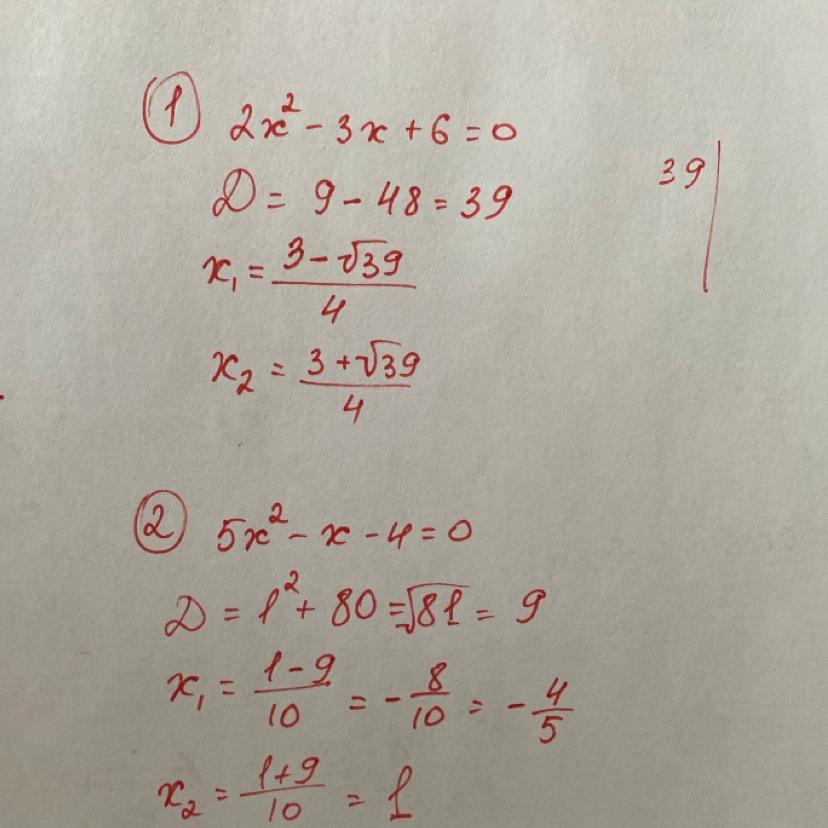 ① 2x² - 3x + 6 = 0
D = 9 - 48 = 39
39 |
x₁ = (3 - √39)/4
x₂ = (3 + √39)/4
② 5x² - x - 4 = 0
D = 1² + 80 = √81 = 9
x₁ = (1 - 9)/10 = - 8/10 = - 4/5
x₂ = (1 + 9)/10 = 1